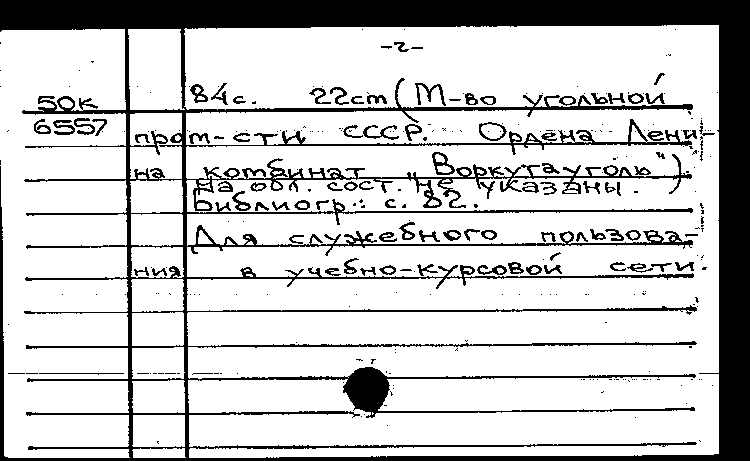 -2-
50к 84с. 22cm (М-во угольной
6557 пром-сти СССР. Ордена Лени-
на комбинат „Воркутауголь")
На обл. сост. не указаны.
Библиогр.: с. 82.
Для служебного пользова-
ния в учебно-курсовой сети.